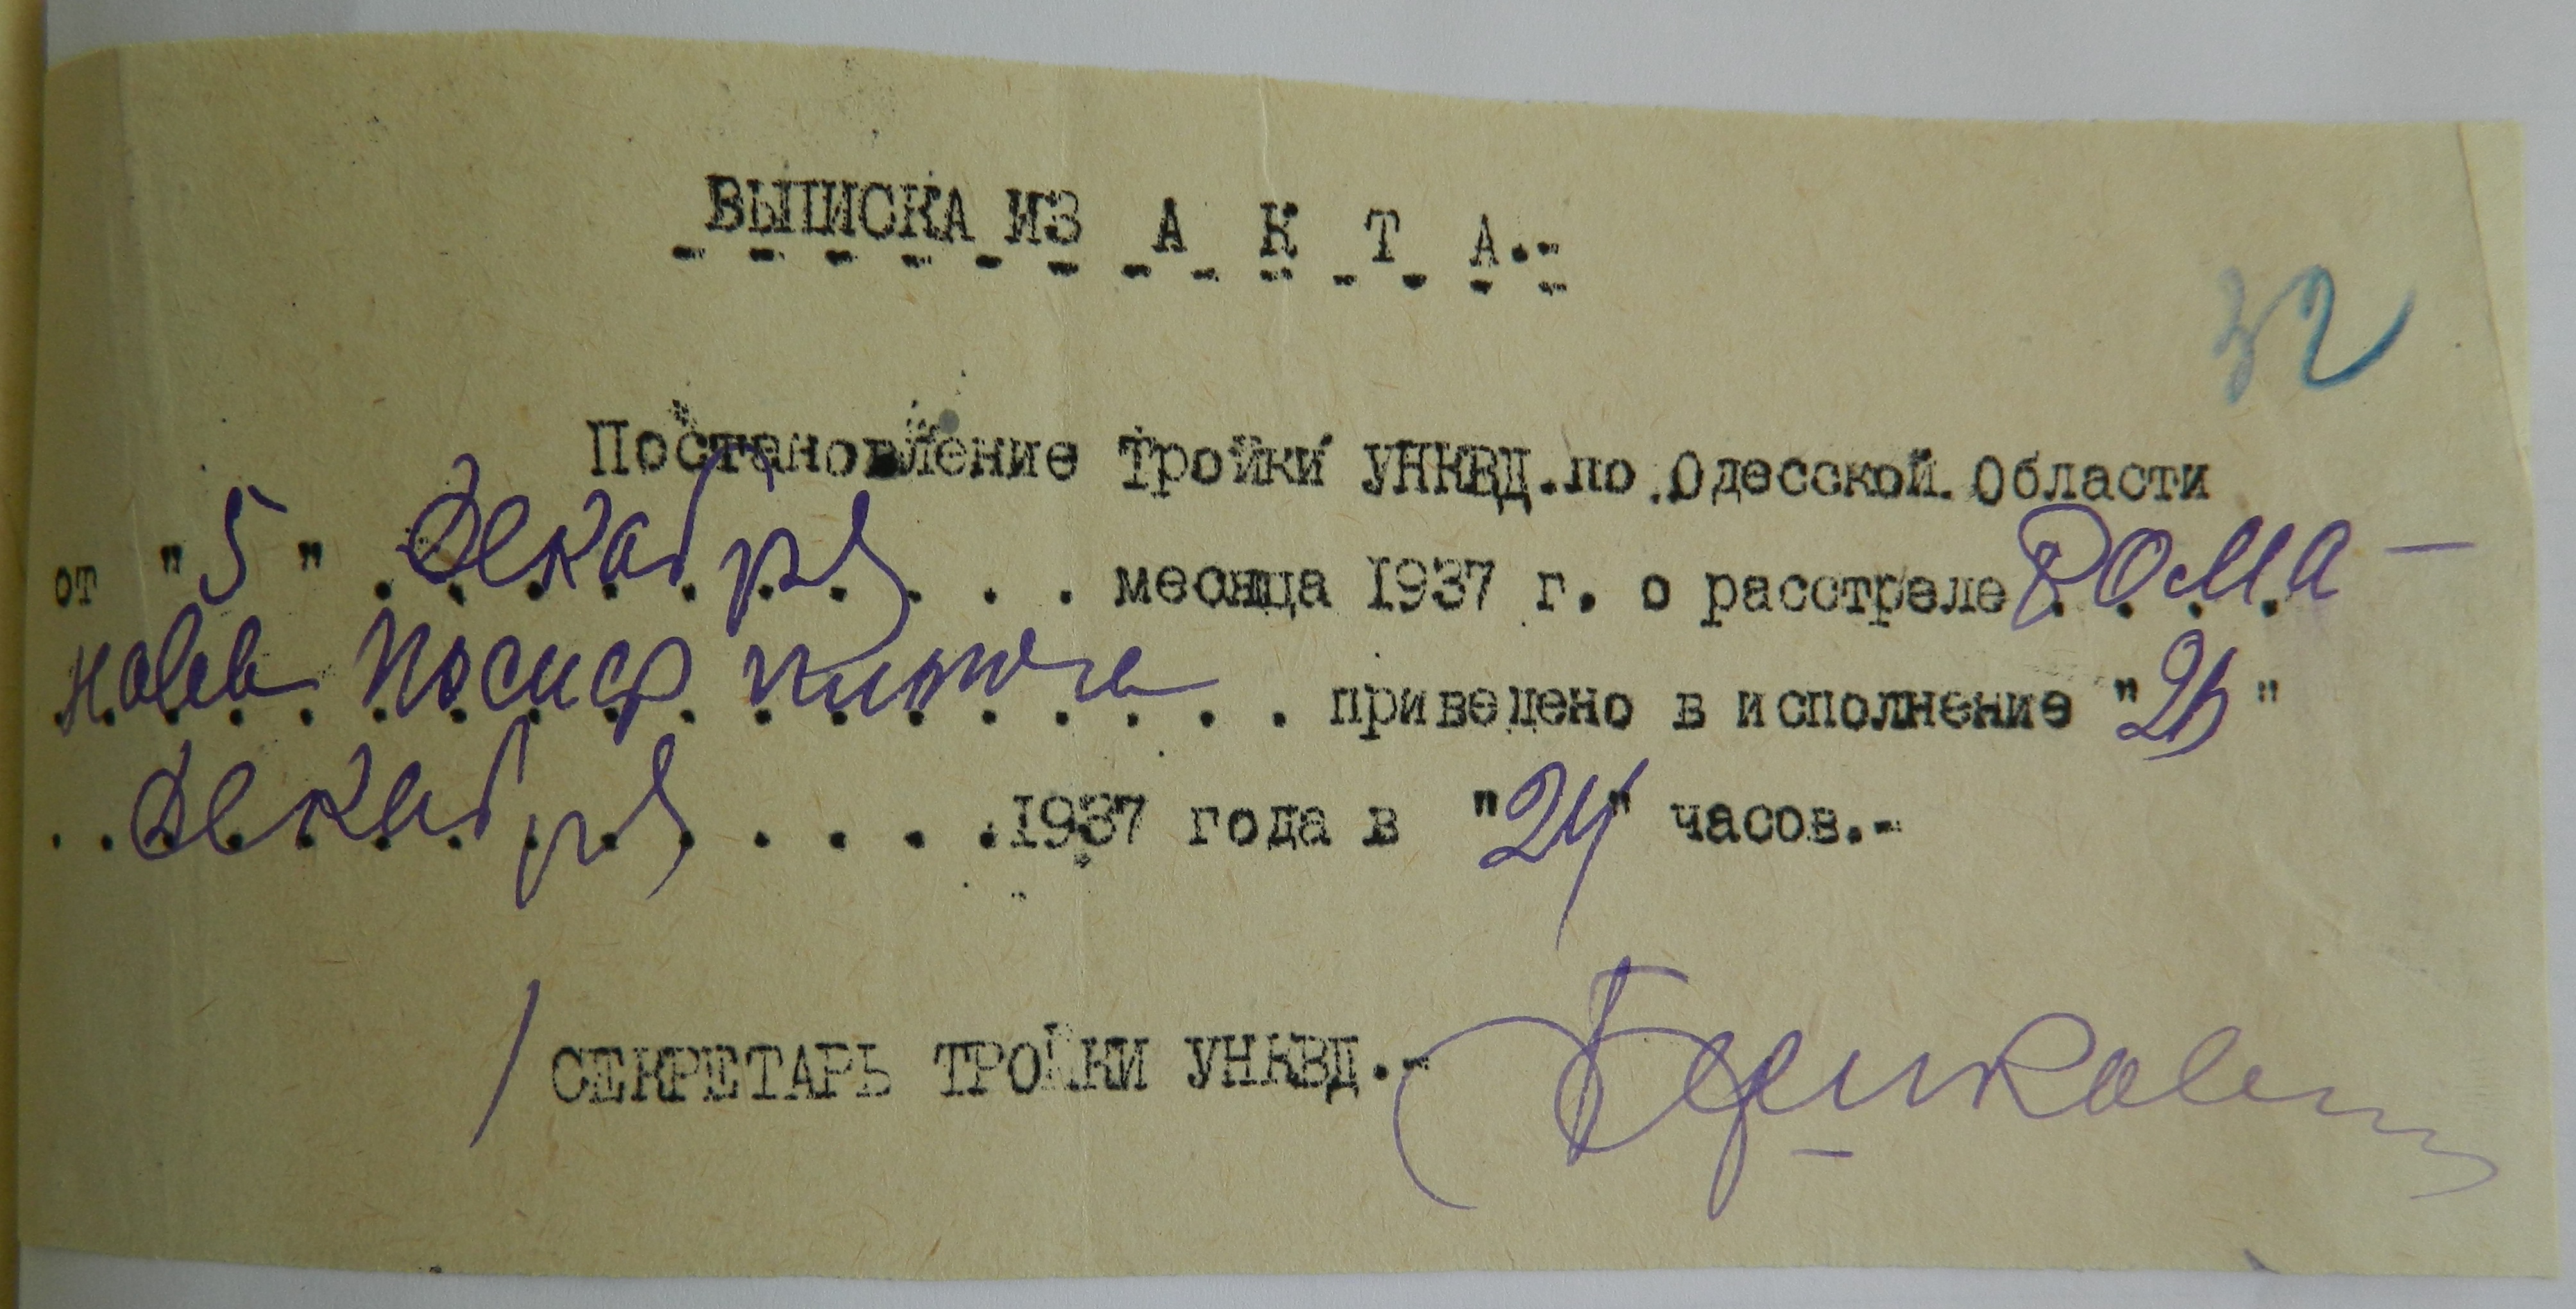 ВЫПИСКА ИЗ А К Т А.-
32
Постановление Тройки УНКВД.по.Одесской.Области
от "5" Декабря . . . месяца 1937 г. о расстреле Рома-
. . приведено в исполнение " "
. . Декабря . . . .1937 года в "24" часов.-
СЕКРЕТАРЬ ТРОЙКИ УНКВД.-